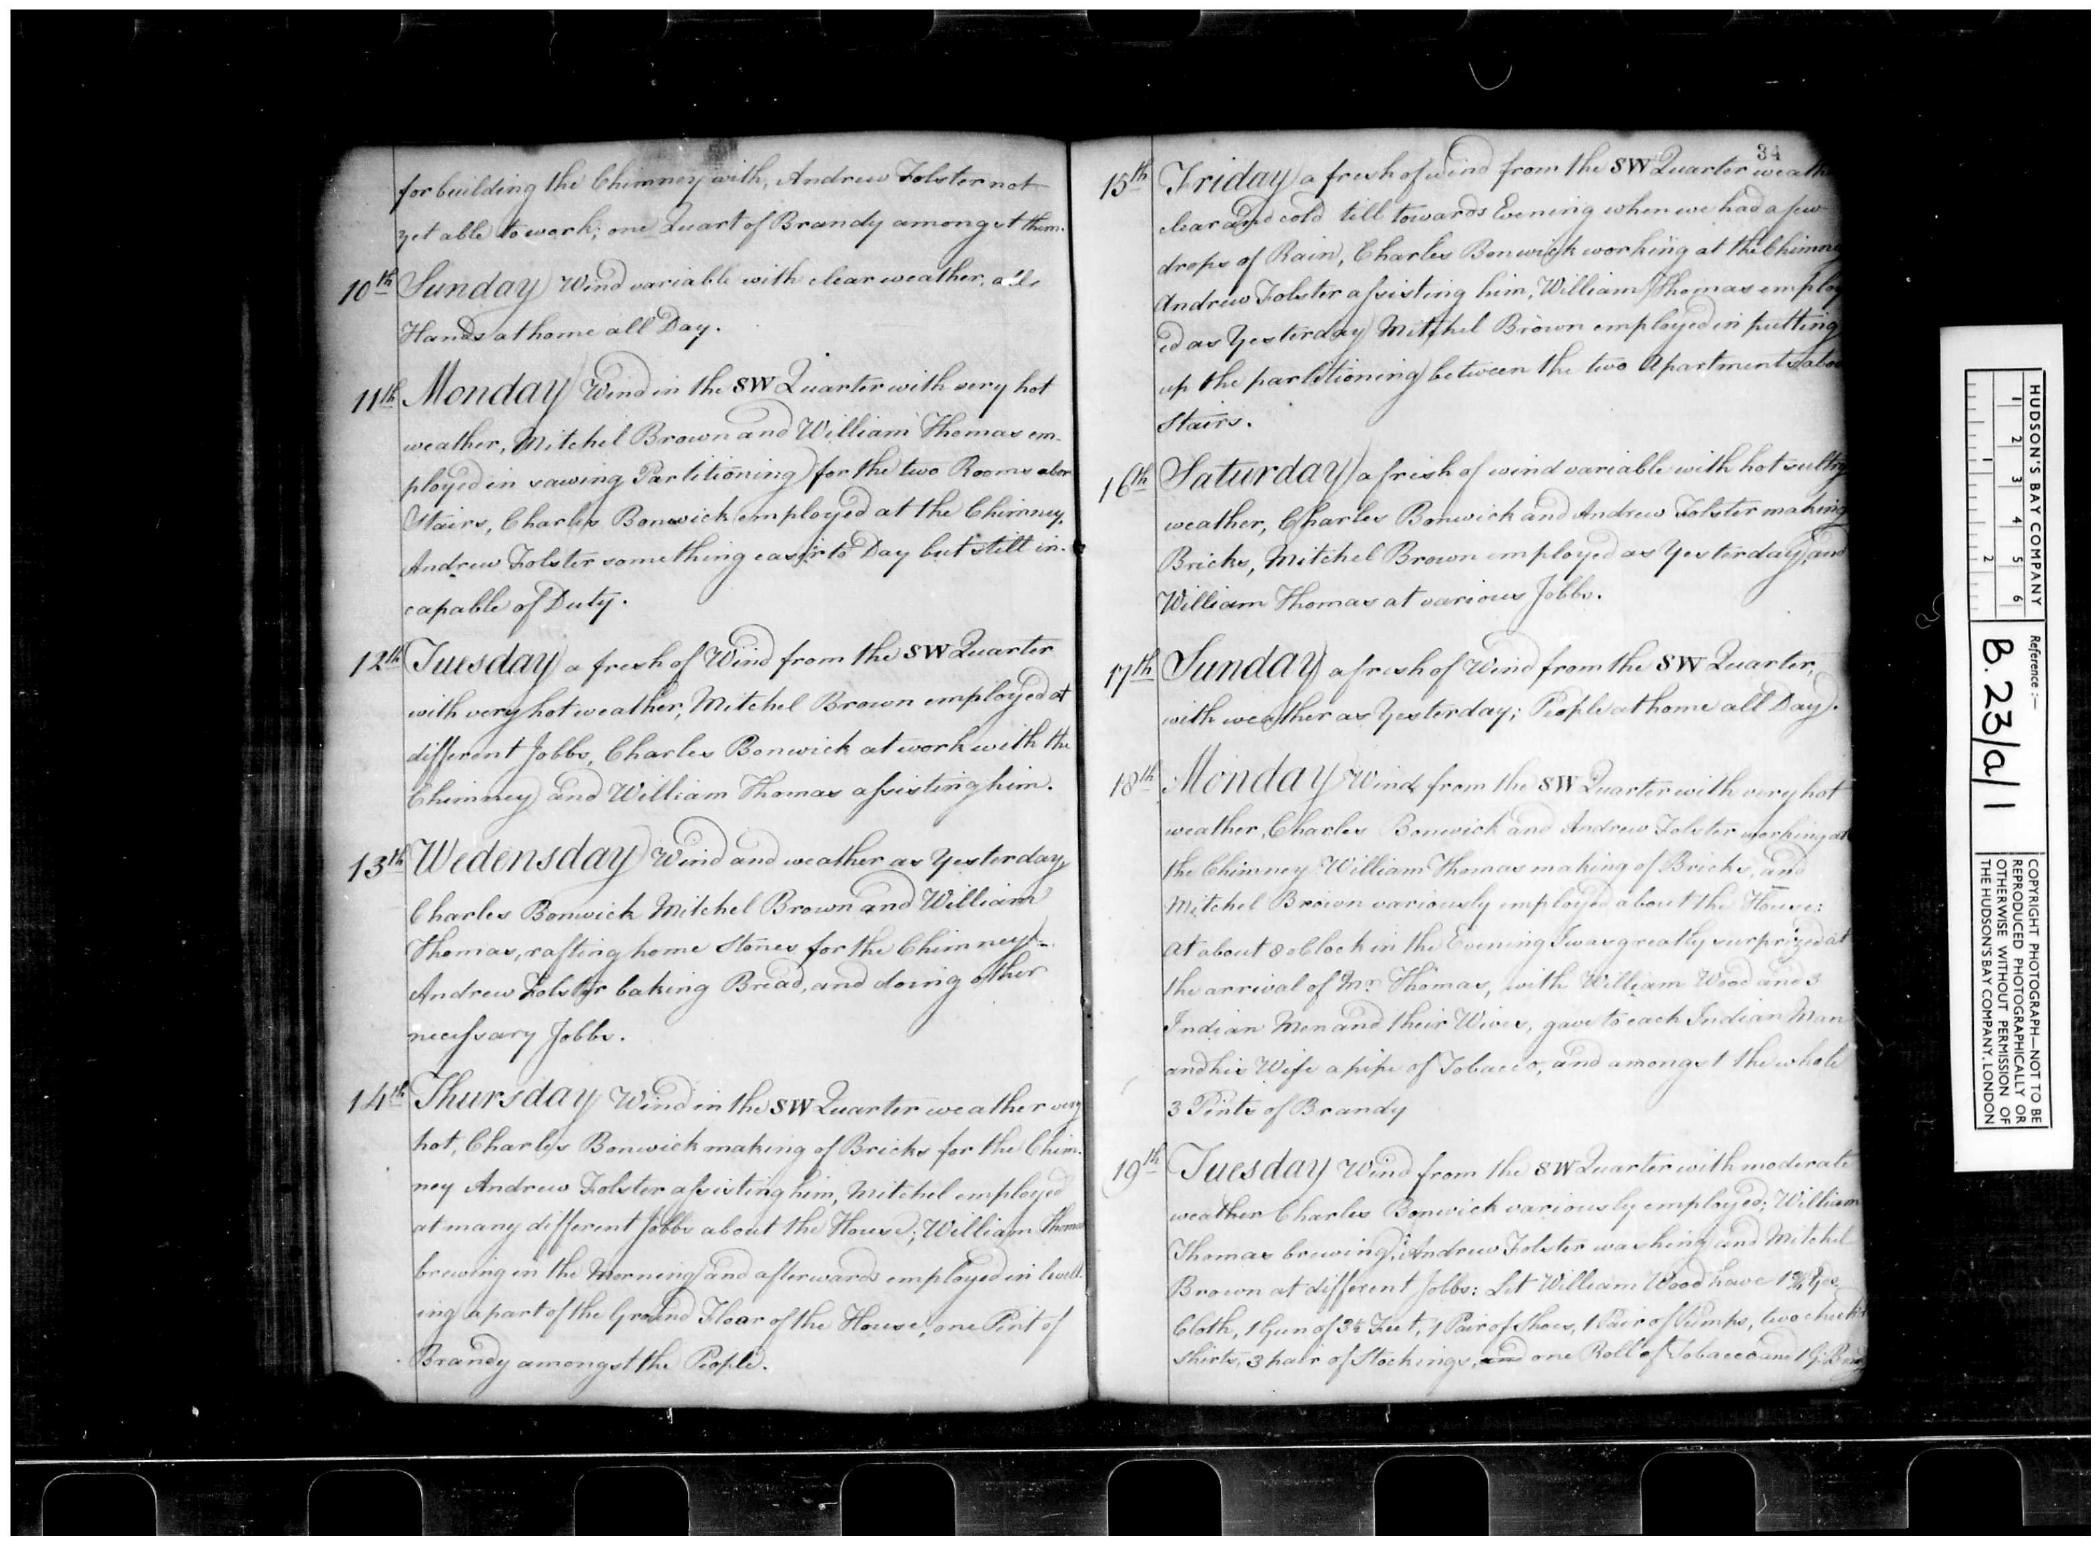 for building the Chimney with, Andrew Folster not
yet able to work; one Quart of Brandy amongst them.
10th Sunday Wind variable with clear weather, all
Hands at home all Day.
11th Monday Wind in the SW Quarter with very hot
weather, Mitchel Brown and William Thomas em-
ployed in sawing Partitioning for the two Rooms abov
Stairs, Charles Bonwick employed at the Chimney,
Andrew Folster something easier to Day but still in-
capable of Duty.
12th Tuesday a fresh of Wind from the SW Quarter
with very hot weather, Mitchel Brown employed at
different Jobbs, Charles Bonwick at work with the
Chimney and William Thomas assisting him.
13th Wedensday Wind and weather as Yesterday
Charles Bonwick Mitchel Brown and William
Thomas, rafting home Stones for the Chimney
Andrew Folster baking Bread, and doing other
necessary Jobbs.
14th Thursday Wind in the SW Quarter weather very
hot, Charles Bonwick making of Bricks for the Chim-
ney Andrew Folster assisting him, Mitchel employed
at many different Jobbs about the House; William Thomas
brewing in the Morning and afterwards employed in levell-
ing a part of the Ground Floor of the House, one Pint of
Brandy amongst the People.
34
15th Friday a fresh of wind from the SW Quarter weath
clear and cold till towards Evening when we had a few
drops of Rain, Charles Bonwick working at the Chimne
Andrew Folster assisting him, William Thomas employ
ed as Yesterday Mitchel Brown employed in putting
up the partitioning between the two Apartments abov
Stairs.
16th Saturday a fresh of wind variable with hot sultry
weather, Charles Bonwick and Andrew Folster making
Bricks, Mitchel Brown employed as Yesterday, and
William Thomas at various Jobbs.
17th Sunday a fresh of Wind from the SW Quarter,
with weather as Yesterday; People at home all Day.
18th Monday Wind from the SW Quarter with very hot
weather, Charles Bonwick and Andrew Folster working at
the Chimney William Thomas making of Bricks, and
Mitchel Brown variously employed about the House:
At about 8 oClock in the Evening I was greatly surprized at
the arrival of Mr Thomas, with William Wood and 3
Indian Men and their Wives, gave to each Indian Man
and his Wife a pipe of Tobacco, and amongst the whole
3 Pints of Brandy
19th Tuesday Wind from the SW Quarter with moderate
weather Charles Bonwick variously employed; William
Thomas brewing; Andrew Folster washing and Mitchel
Brown at different Jobbs: Let William Wood have 1 3/4 Yds
Cloth, 1 Gun of 3½ Feet, 1 Pair of Shoes, 1 Pair of Pumps, two check'd
shirts, 3 pair of Stockings, and one Roll of Tobacco and 1 G: Brandy
HUDSON'S BAY COMPANY
1 2 3 4 5 6
1 2
Reference :-
B.23/a/1
COPYRIGHT PHOTOGRAPH—NOT TO BE
REPRODUCED PHOTOGRAPHICALLY OR
OTHERWISE WITHOUT PERMISSION OF
THE HUDSON'S BAY COMPANY, LONDON